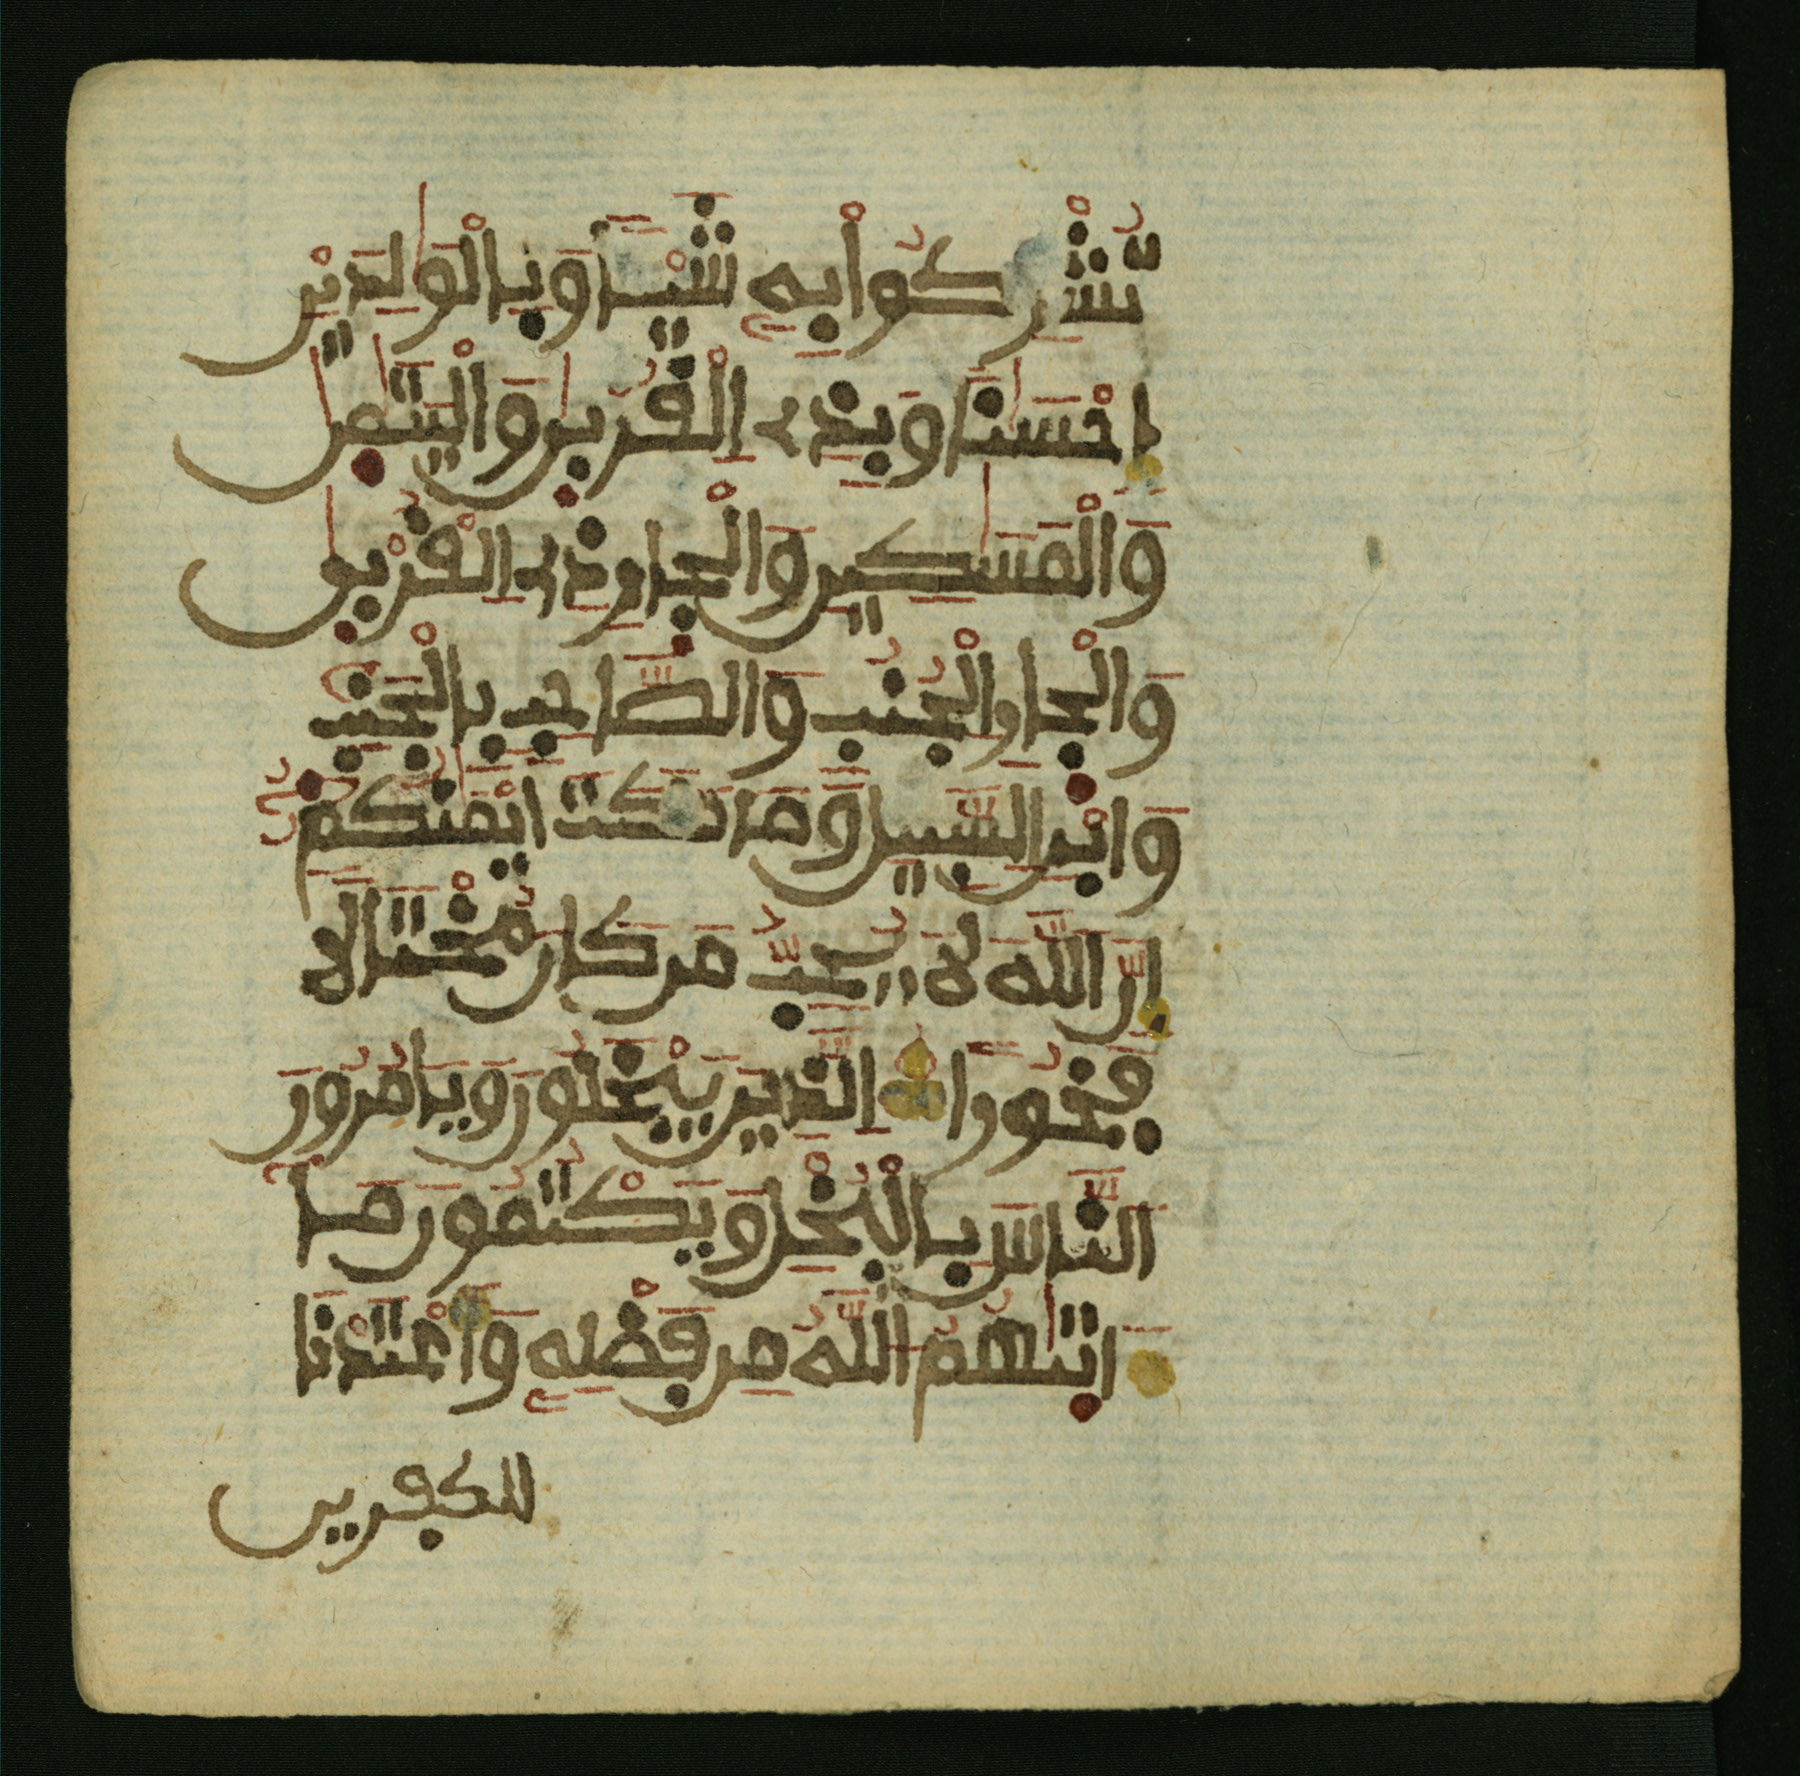 تُشْرِكُوا۟ بِهِۦ شَيْـًٔا وَبِالْوَٰلِدَيْنِ
إِحْسَٰنًا وَبِذِے اِلْقُرْبَىٰ وَالْيَتَٰمَىٰ
وَالْمَسَٰكِينِ وَالْجِارِ ذِے اِلْقُرْبَىٰ
وَالْجِارِ الْجُنُبِ وَالصَّاحِبِ بِالْجَنۢبِ
وَابْنِ السَّبِيلِ وَمَا مَلَكَتَ اَيْمَٰنُكُمُۥٓ
إِنَّ اللَّهَ لَا يُحِبُّ مَن كَانَ مُخْتَالًا
فَخُورًا الَّذِينَ يَبْخَلُونَ وَيَامُرُونَ
النَّاسَ بِالْبُخْلِ وَيَكْتُمُونَ مَآ
ءَاتَىٰهُمُ اللَّهُ مِن فَضْلِهِۦ وَأَعْتَدْنَا
للكٰفرين